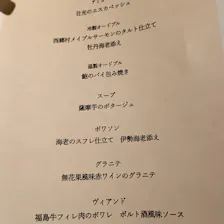 佐光のエスカベッシュ
冷製オードブル
西郷村メイプルサーモンのタルト仕立て
牡丹海老添え
温製オードブル
鮑のパイ包み焼き
スープ
薩摩芋のポタージュ
ポワソン
海老のスフレ仕立て 伊勢海老添え
グラニテ
無花果風味赤ワインのグラニテ
ヴィアンド
福島牛フィレ肉のポワレ ポルト酒風味ソース